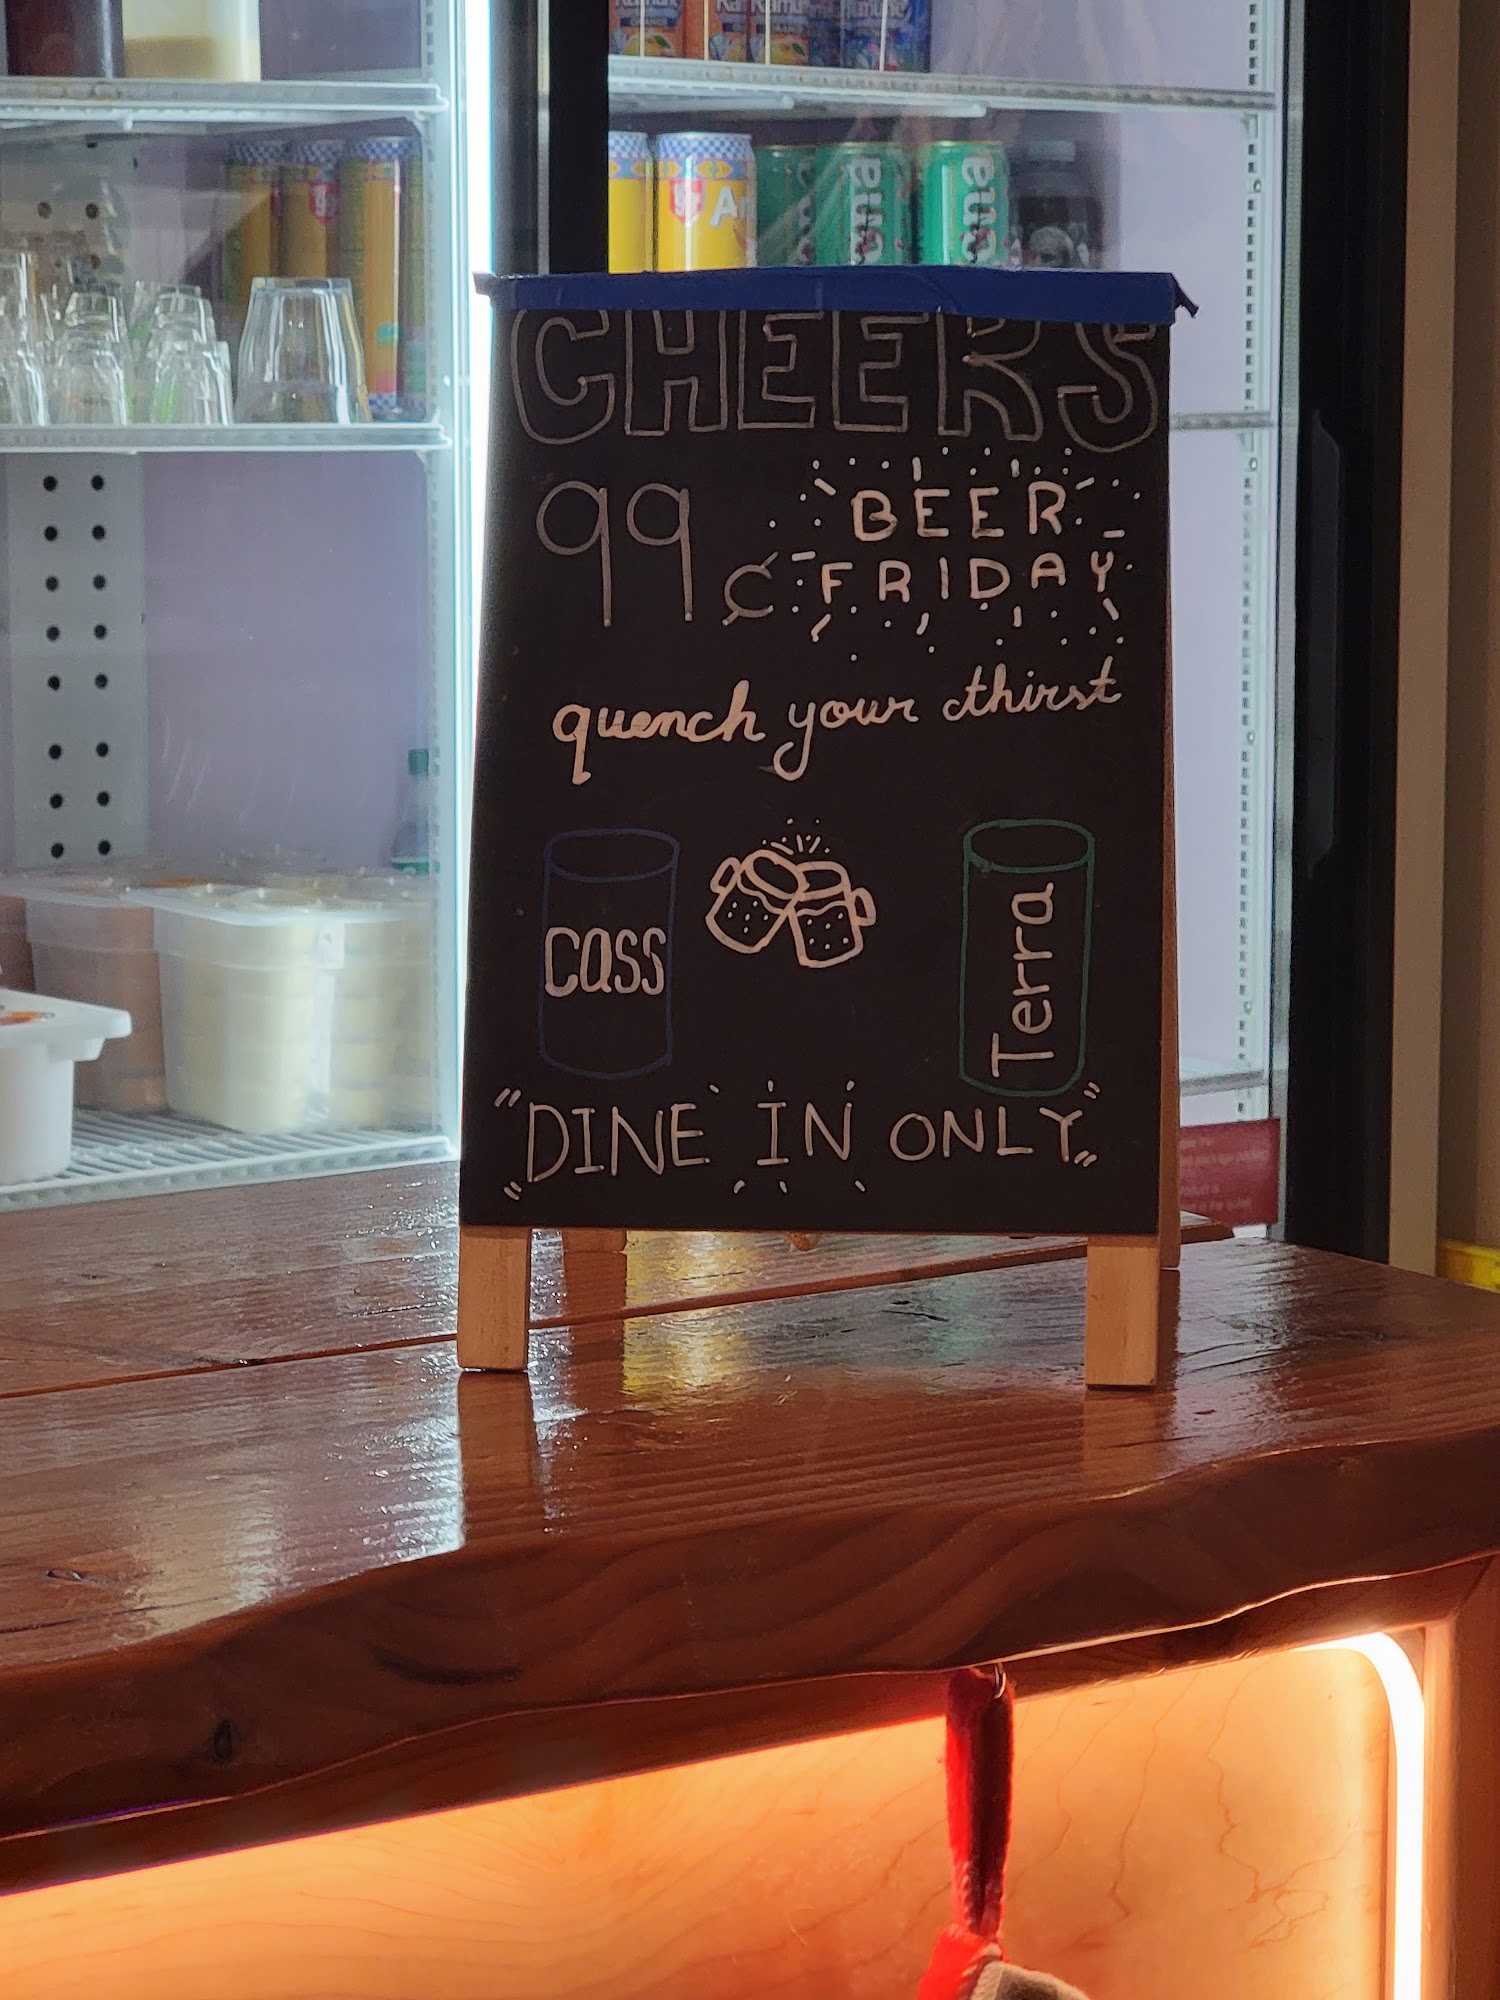 CHEERS
99¢ BEER
FRIDAY
quench your thirst
Cass
Terra
"DINE IN ONLY"